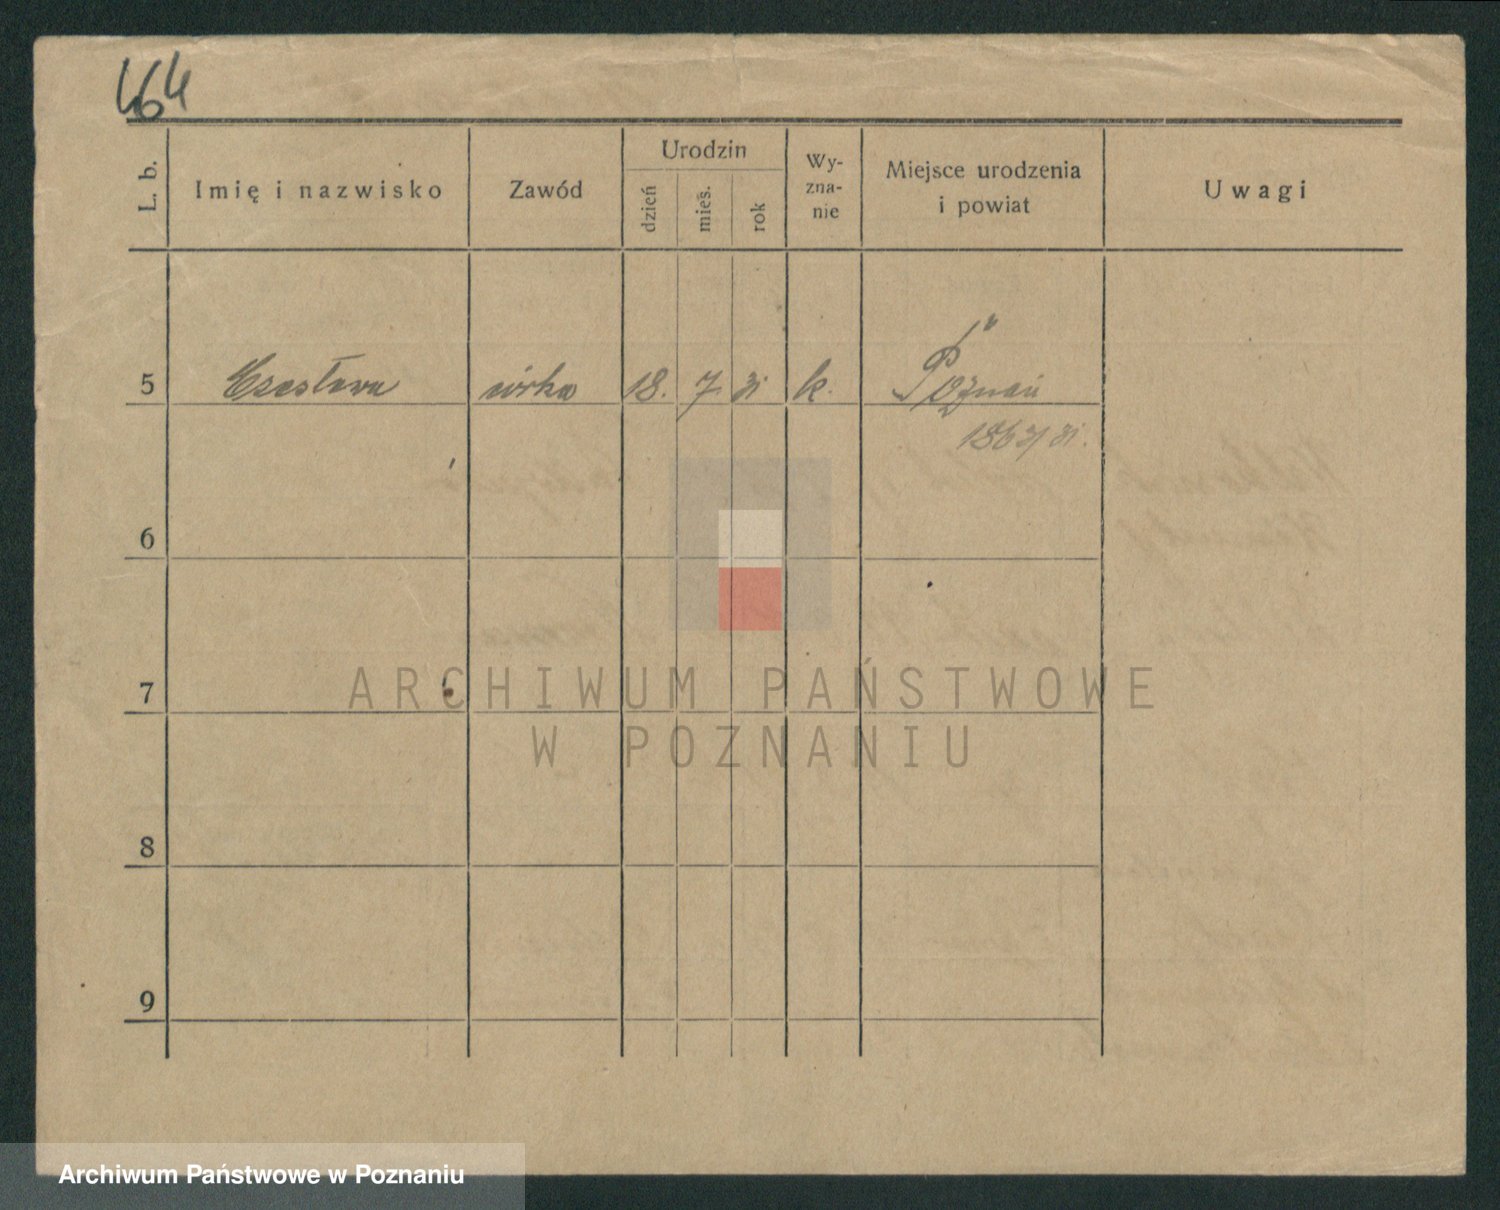 464
L. b.
Imię i nazwisko
Zawód
Urodzin
dzień
mieś.
rok
Wy-
zna-
nie
Miejsce urodzenia
i powiat
Uwagi
5 Czesława córka 18. 7. 31 k. Poznań
1863/31.
6
7
8
9
ARCHIWUM PAŃSTWOWE
W POZNANIU
Archiwum Państwowe w Poznaniu